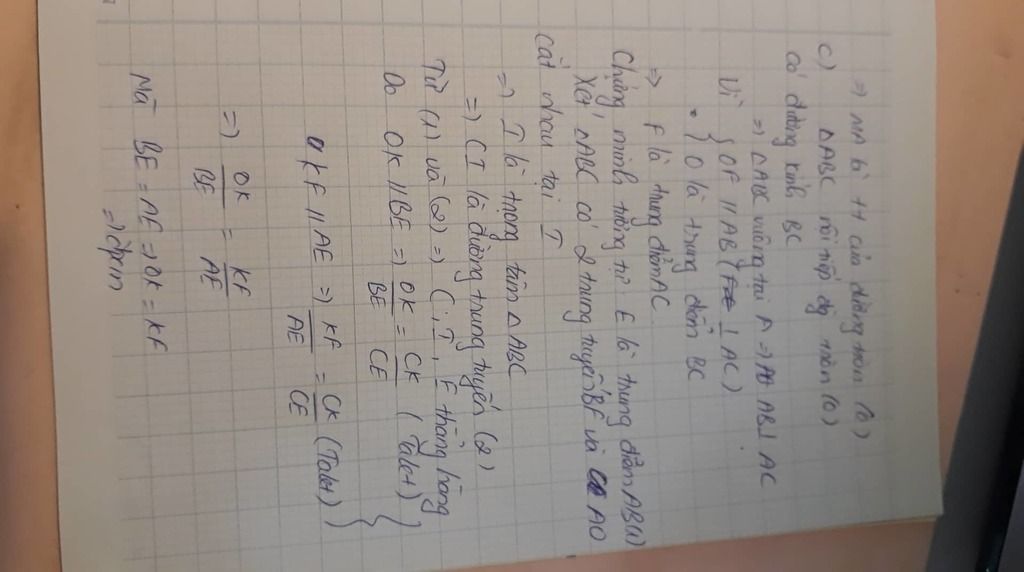 => MA là tt của đường tròn (O)
c) ΔABC nội tiếp đg tròn (O)
có đường kính BC
=> ΔABC vuông tại A => AB ⊥ AC
Vì { OF // AB ( ⊥ AC)
{ O là trung điểm BC
=> F là trung điểm AC
Chứng minh tương tự: E là trung điểm AB (1)
Xét ΔABC có 2 trung tuyến BF và AO
cắt nhau tại I
=> I là trọng tâm ΔABC
=> CI là đường trung tuyến (2)
Từ (1) và (2) => C, I, E thẳng hàng
Do OK // BE => OK/BE = CK/CE (Talet) }
KF // AE => KF/AE = CK/CE (Talet) }
=> OK/BE = KF/AE
Mà BE = AE => OK = KF
=> đpcm